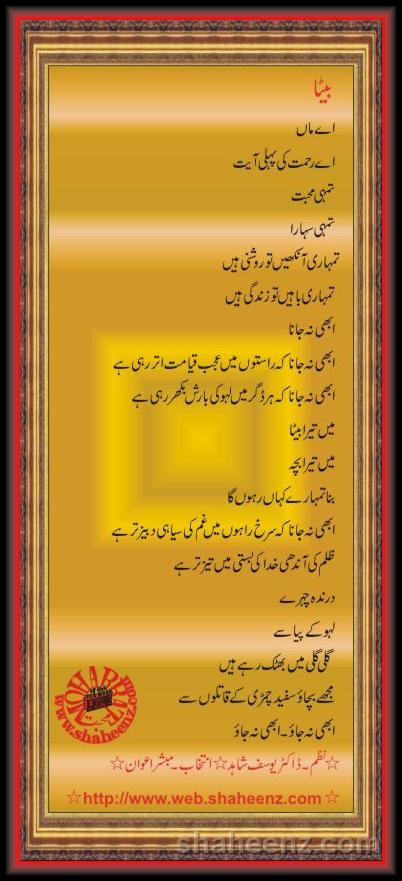 بیٹا
اے ماں
اے رحمت کی پہلی آیت
تمہی محبت
تمہی سہارا
تمہاری آنکھیں تو روشنی ہیں
تمہاری باہیں تو زندگی ہیں
ابھی نہ جانا
ابھی نہ جانا کہ راستوں میں عجب قیامت اتر رہی ہے
ابھی نہ جانا کہ ہر ڈگر میں لہو کی بارش بکھر رہی ہے
میں تیرا بیٹا
میں تیرا بچہ
بنا تمہارے کہاں رہوں گا
ابھی نہ جانا کہ سرخ راہوں میں غم کی سیاہی دبیز تر ہے
ظلم کی آندھی خدا کی بستی میں تیز تر ہے
درندہ چہرے
لہو کے پیاسے
گلی گلی میں بھٹک رہے ہیں
مجھے بچاؤ سفید چمڑی کے قاتلوں سے
ابھی نہ جاؤ۔ ابھی نہ جاؤ
☆نظم۔ ڈاکٹر یوسف شاہد☆انتخاب۔ مبشر اعوان☆
☆http://www.web.shaheenz.com☆
MOHABBAT
www.shaheenz.com
shaheenz.com